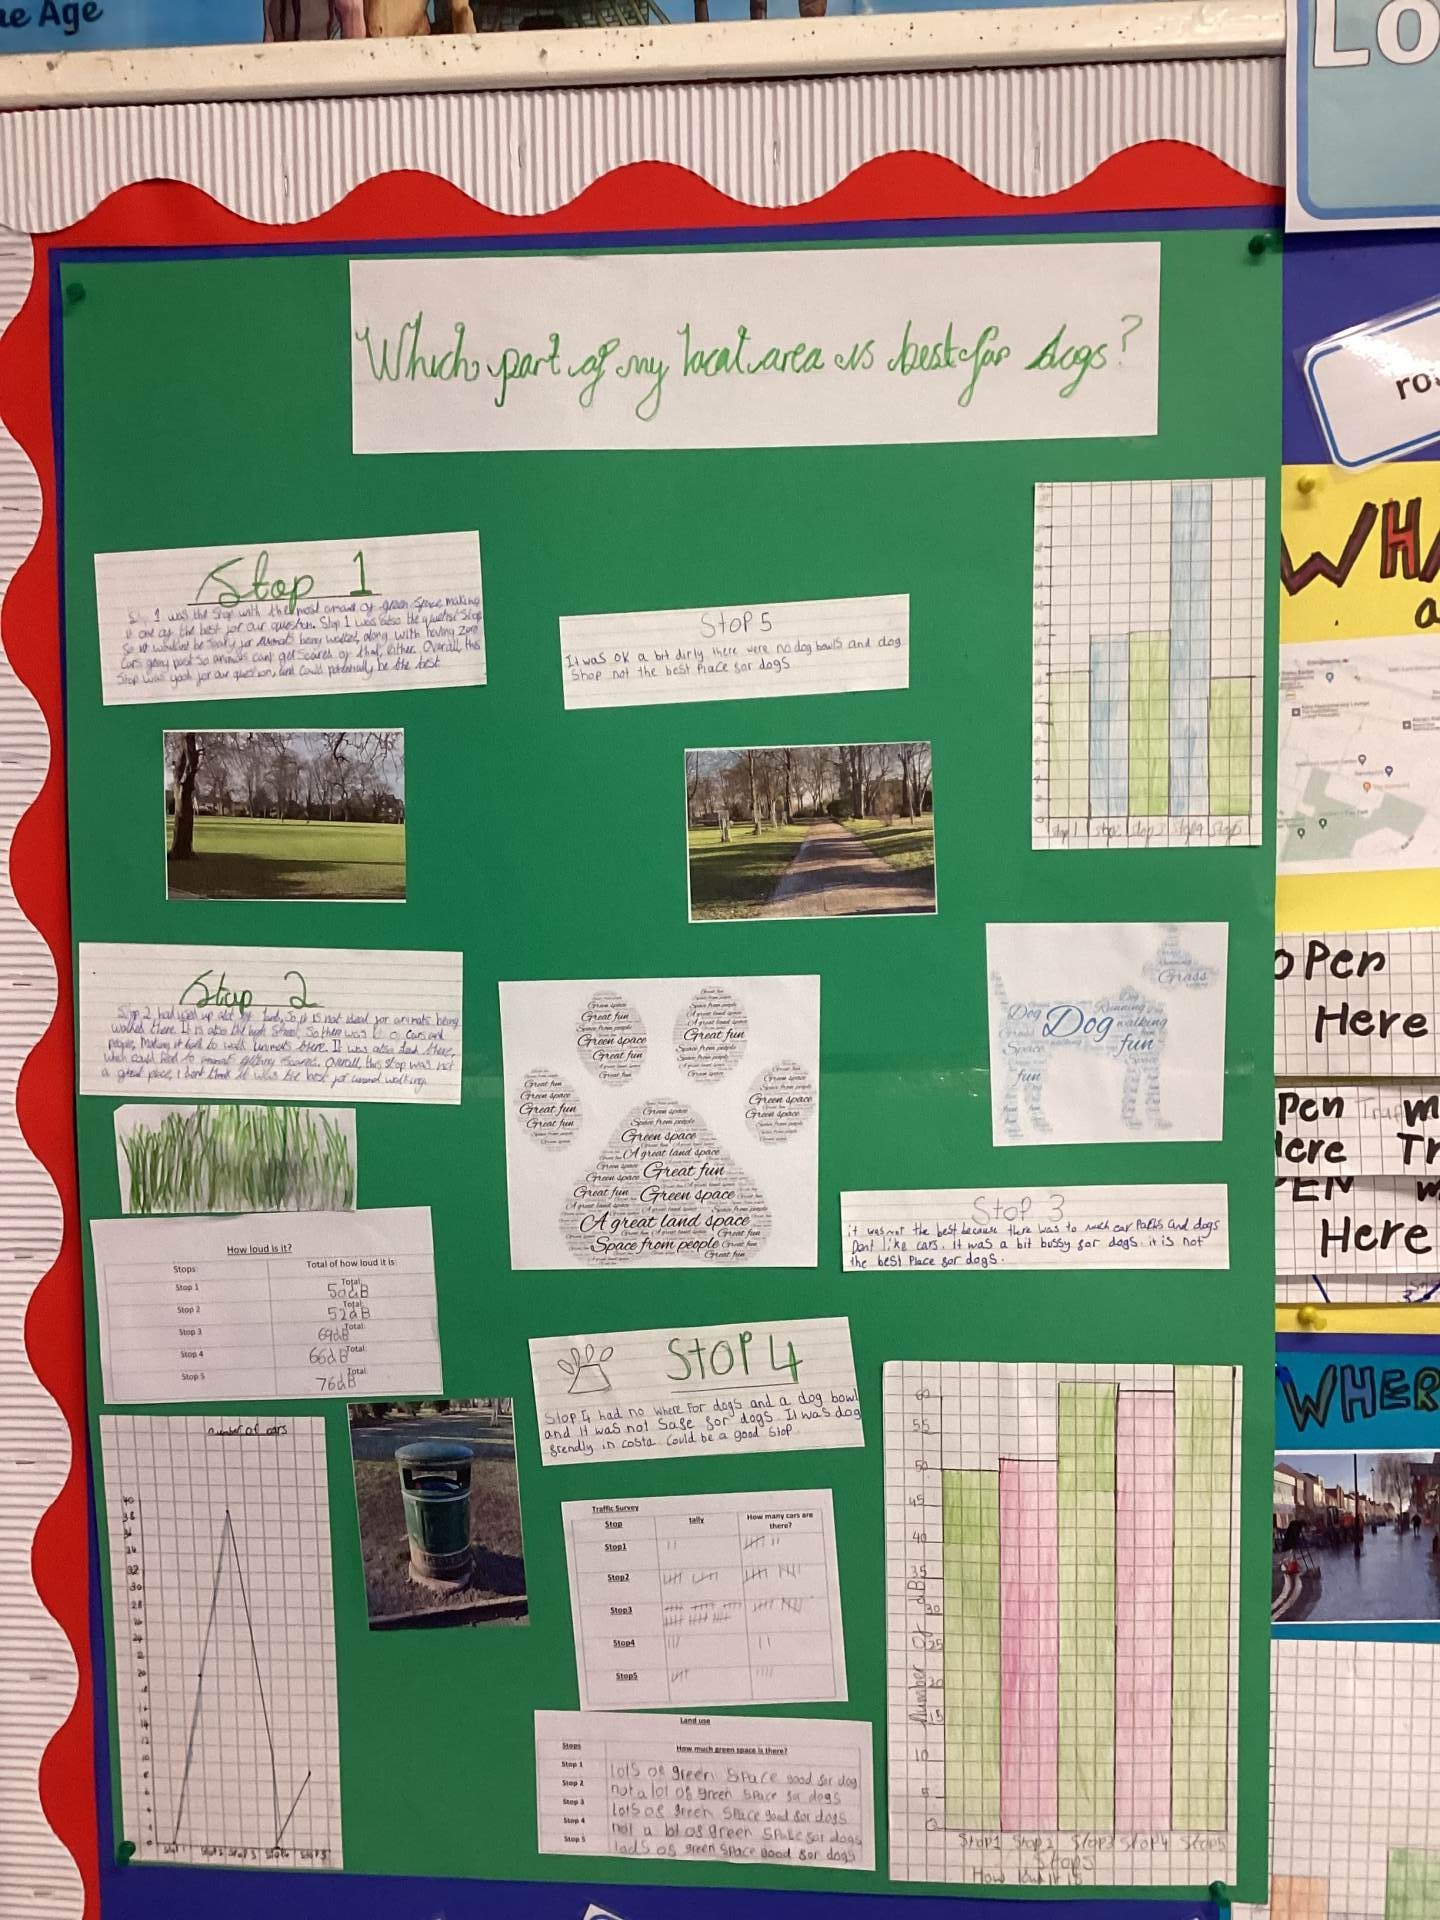 he Age
Lo
Which part of my local area is best for dogs?
ro
WHA
a
Stop 1
Stop 1 was the stop with the most amount of green space, making
it one of the best for our question. Stop 1 was also the quietest stop
so it wouldnt be scary for animals being walked, along with having zero
cars going past so animals cant get scared of that, either. Overall, this
stop was good for our question, and could potentially be the best
Stop 5
It was ok a bit dirty there were no dog bowls and dog
Shop not the best Place for dogs
Stop 1
Stop 5
Stop 2
Stop 2 had used up alot of land, So it is not ideal for animals being
walked there. It is also the high street, So there was cars and
people, Making it hard to walk animals there. It was also loud there,
which could lead to animals getting scared. Overall, this stop was not
a great place, I dont think it was the best for animal walking.
Green space
Great fun
Space from people
Green space
Great fun
Great fun
Green space
Great fun
Green space
A great land space
Great fun
Great fun Green space
A great land space
Space from people
Grass
Dog
Running
Dog walking
fun
Space
fun
oPen
Here
Pen
m
Here
Tr
PEN
Here
WHER
How loud is it?
Stops Total of how loud it is
Stop 1 Total: 50dB
Stop 2 Total: 52dB
Stop 3 Total: 69dB
Stop 4 Total: 66dB
Stop 5 Total: 76dB
Stop 3
it was not the best because there was to much car Parks and dogs
Dont like cars. It was a bit bussy for dogs. it is not
the best Place for dogs.
Stop 4
Stop 4 had no where For dogs and a dog bowl
and it was not Safe for dogs It was dog
frendly in costa. Could be a good Stop.
number of cars
Traffic Survey
Stop tally How many cars are there?
Stop1
Stop2
Stop3
Stop4
Stop5
Land use
Stops How much green space is there?
Stop 1 lots of green Space good for dog
Stop 2 not a lot of green Space for dogs
Stop 3 lots of green Space good for dogs
Stop 4 not a lot of green Space for dogs
Stop 5 lods of green Space good for dogs
60
55
50
45
40
35
30
25
20
15
10
5
0
Number Of dB
Stop1 Stop2 Stop3 Stop4 Stop5
Stops
How loud it is